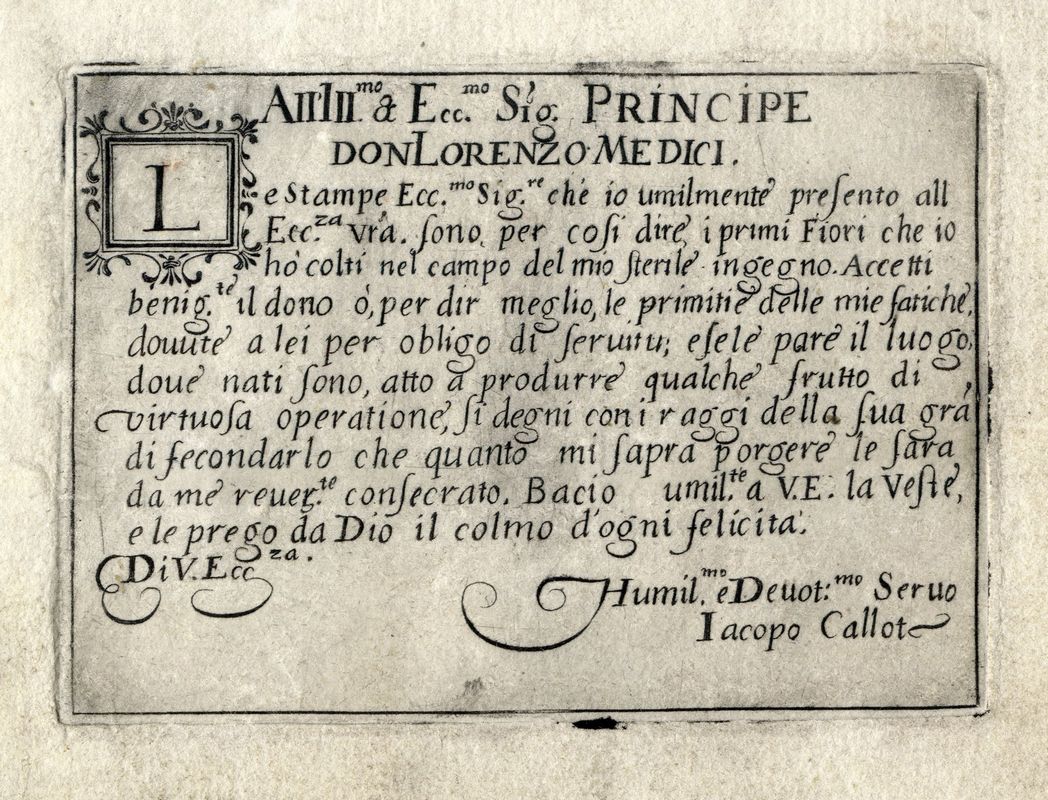 All'Ill.mo & Ecc.mo Sig. PRINCIPE
DON LORENZO MEDICI.
Le Stampe Ecc.mo Sig.re che io umilmente presento all
Ecc.za vra. sono, per cosi dire, i primi Fiori che io
ho colti nel campo del mio sterile ingegno. Accetti
benig.te il dono ò, per dir meglio, le primitie delle mie fatiche,
douute a lei per obligo di seruitu; e se le pare il luogo,
doue nati sono, atto à produrre qualche frutto di
virtuosa operatione, si degni con i raggi della sua gra
di fecondarlo che quanto mi saprà porgere le sarà
da me reuer.te consecrato. Bacio umil.te à V.E. la Veste,
e le prego da Dio il colmo d'ogni felicita.
Di V. Ecc.za.
Humil.mo e Deuot:mo Seruo
Iacopo Callot